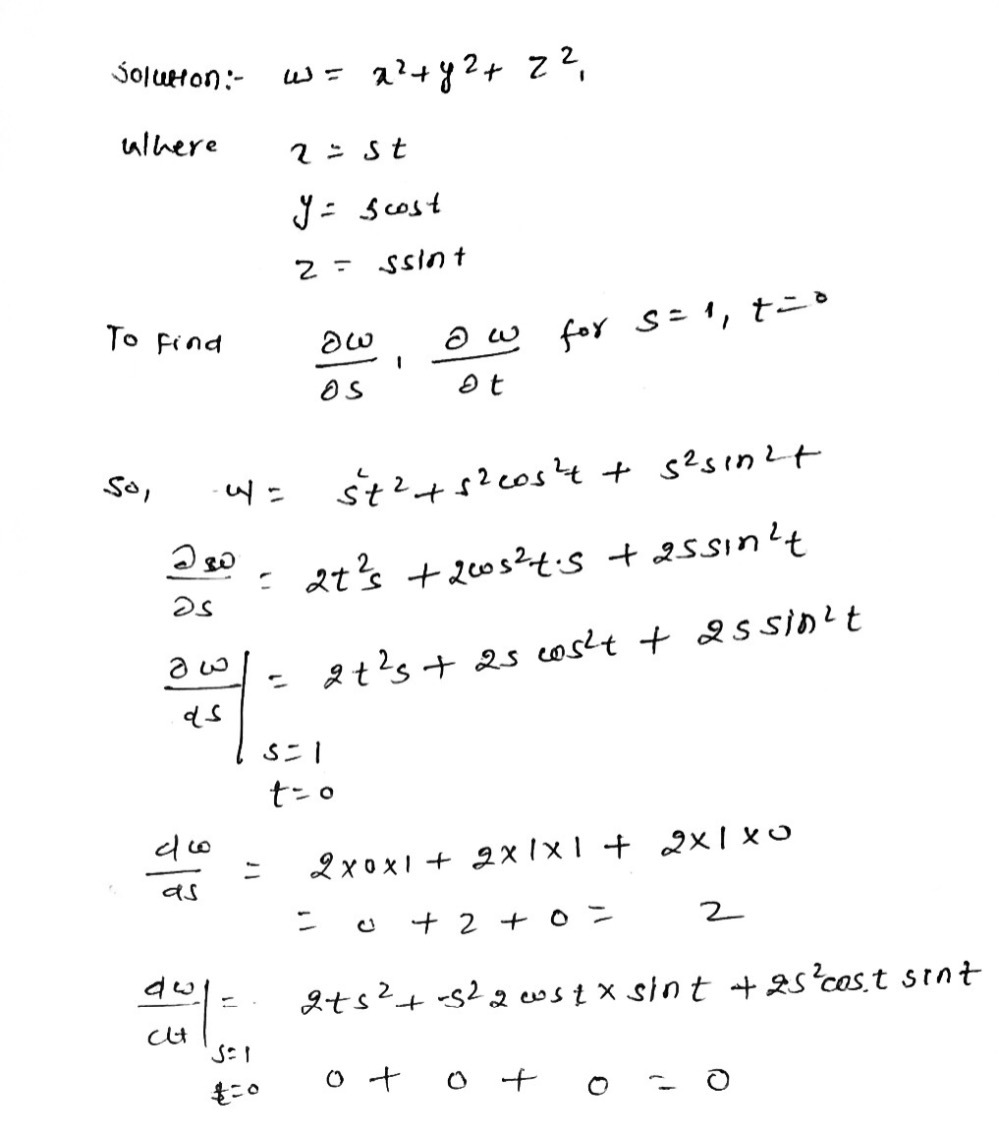 Solution:- w = x²+y²+ z²,
where x = st
y = scost
z = ssint
To find ∂w/∂s , ∂w/∂t for s=1, t=0
So, w = s²t²+s²cos²t + s²sin²t
∂w/∂s = 2t²s +2cos²t·s + 2ssin²t
∂w/ds | s=1 t=0 = 2t²s + 2s cos²t + 2s sin²t
dw/ds = 2x0x1 + 2x1x1 + 2x1x0
= 0 + 2 + 0 = 2
dw/dt | s=1 t=0 = 2ts² + -s² 2 cost x sint + 2s²cos.t sint
0 + 0 + 0 = 0